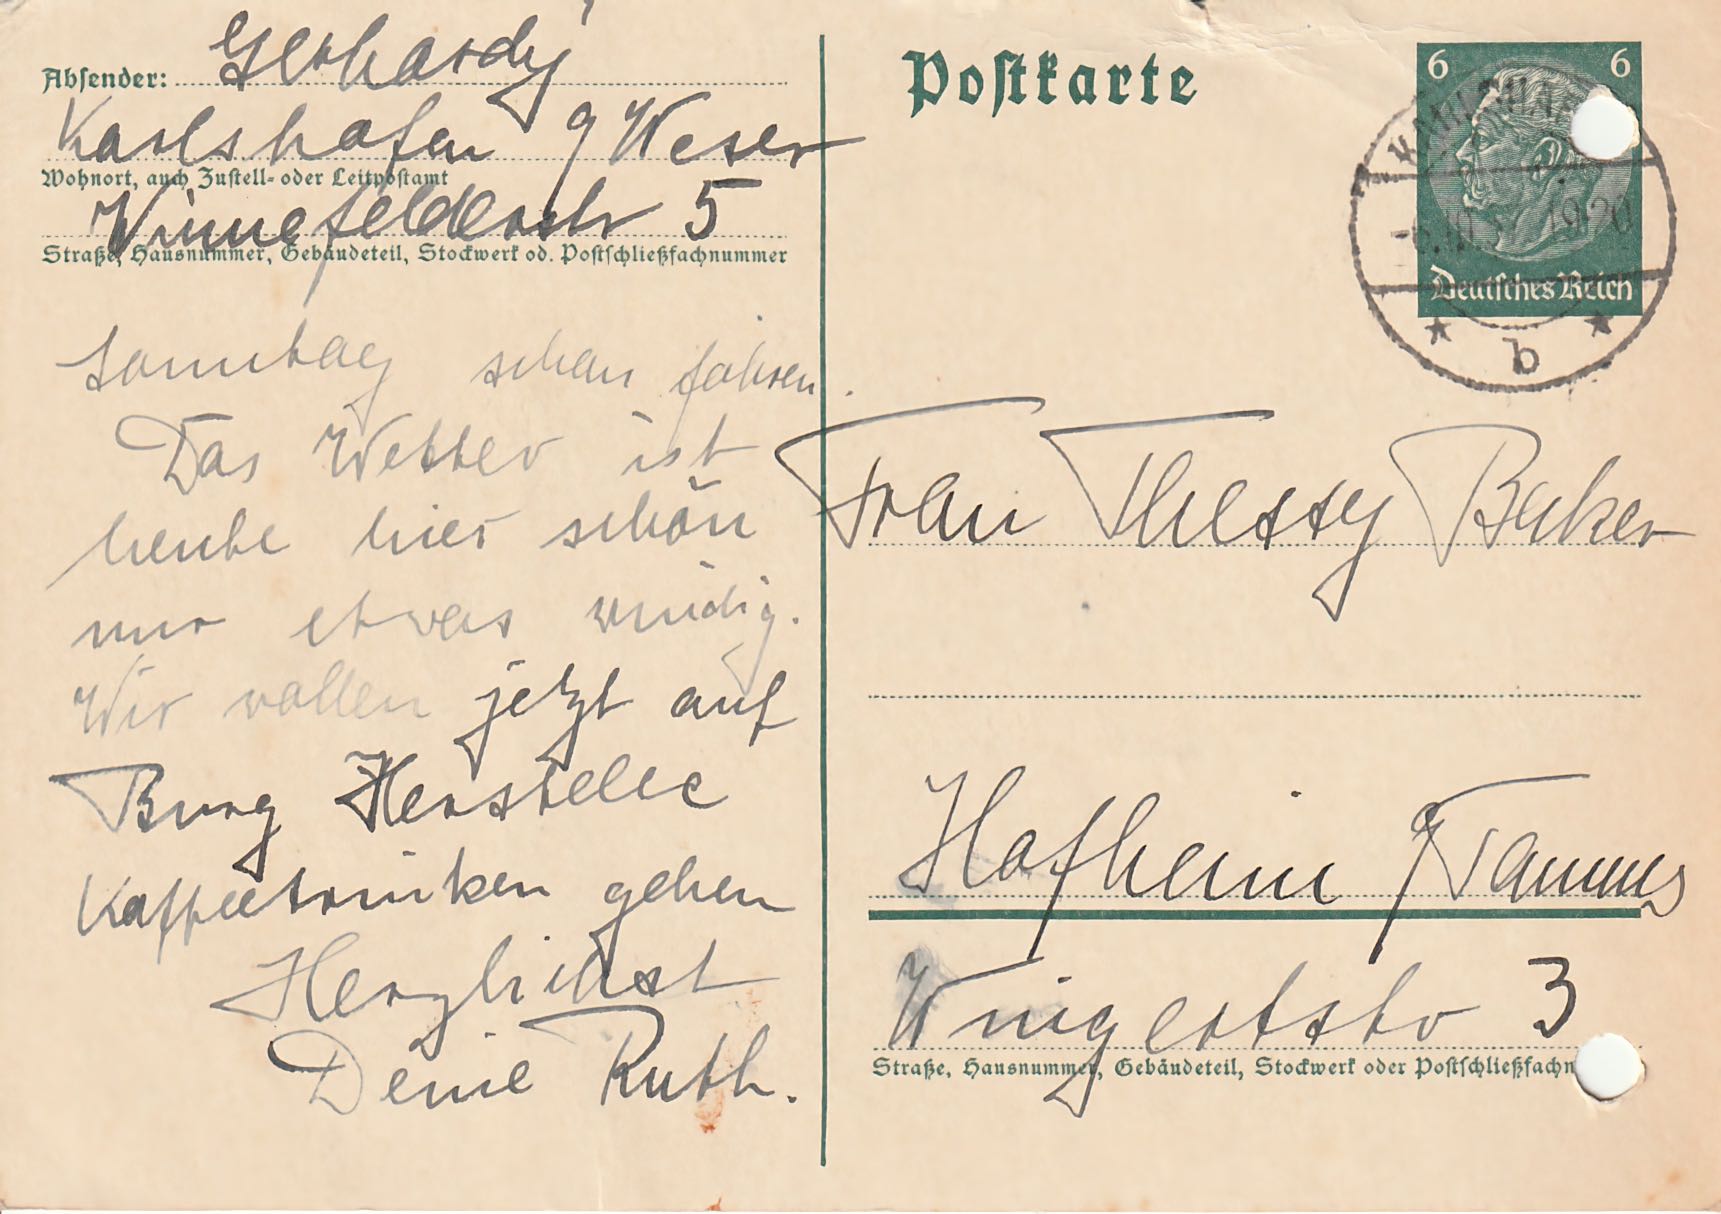 Absender: Gerhardy
Karlshafen / Weser
Wohnort, auch Zustell- oder Leitpostamt
Winnefelderstr 5
Straße, Hausnummer, Gebäudeteil, Stockwerk od. Postschließfachnummer
Sonntag schon fahren.
Das Wetter ist
heute hier schön
nur etwas windig.
Wir wollen jetzt auf
Burg Herstelle
Kaffeetrinken gehen
Herzlichst
Deine Ruth.
Postkarte
6 6
Deutsches Reich
19-20
b
Frau Thessy
Hofheim / Taunus
Wingertstr 3
Straße, Hausnummer, Gebäudeteil, Stockwerk oder Postschließfachn